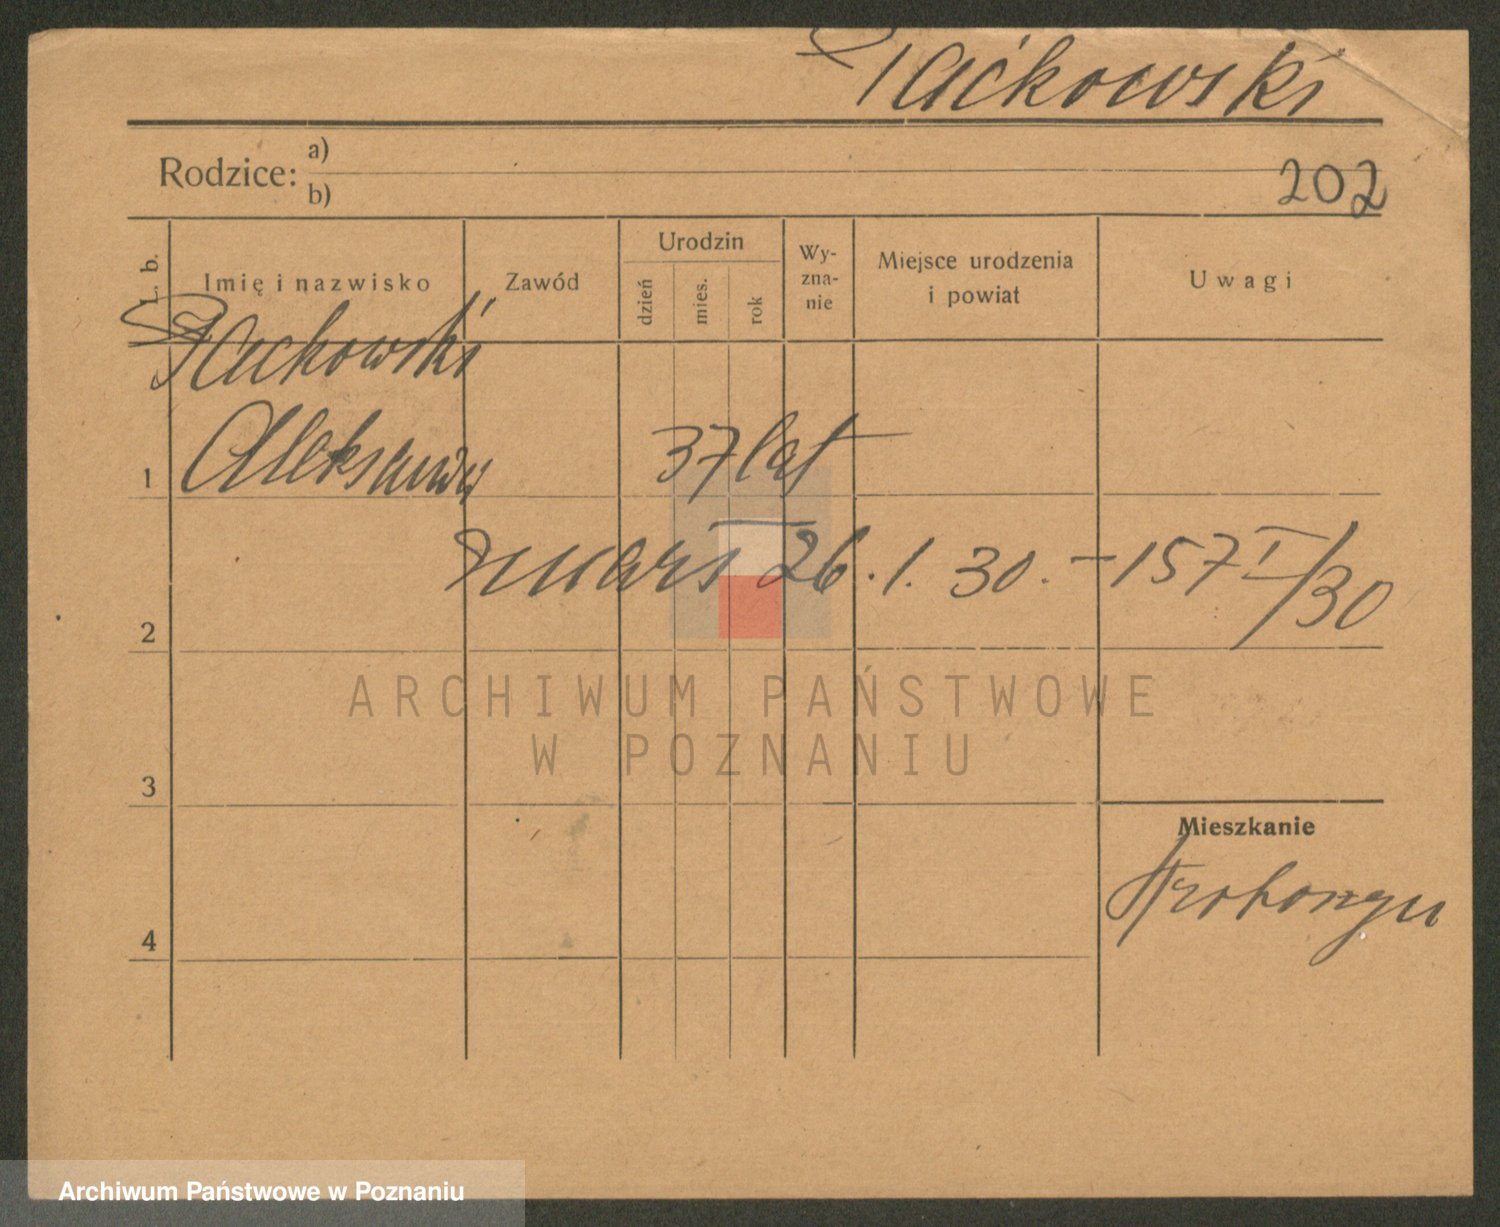 Rodzice:
a)
b)
202
L. b.
Imię i nazwisko
Zawód
Urodzin
dzień
mies.
rok
Wy-
zna-
nie
Miejsce urodzenia
i powiat
Uwagi
1
37 lat
2
zmarł 26. 1. 30. – 157 I/30
ARCHIWUM PAŃSTWOWE
W POZNANIU
3
Mieszkanie
4
Archiwum Państwowe w Poznaniu